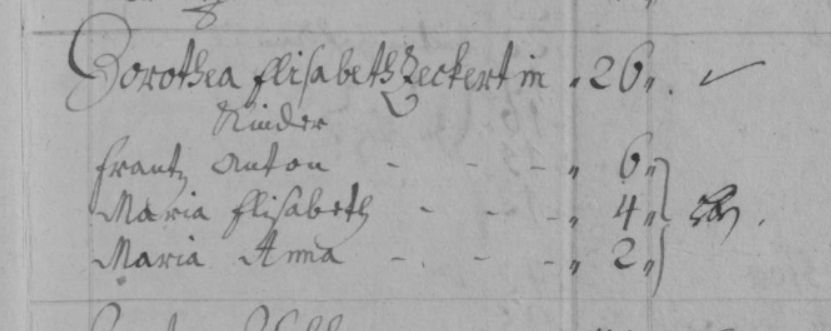 Dorothea Elisabeth Zeckertin " 26 " .
Kinder
Frantz Anton - - - " 6 "
Maria Elisabeth - - - " 4 "
Maria Anna - . - - " 2 "